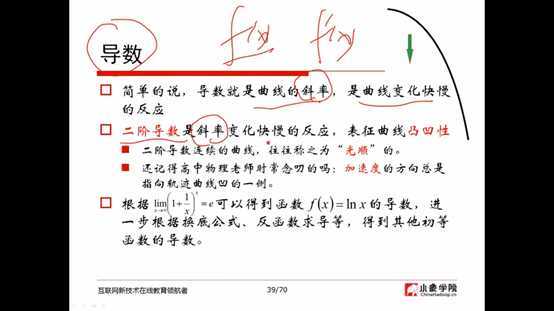 导数
f(x) f'(x)
简单的说，导数就是曲线的斜率，是曲线变化快慢
的反应
二阶导数是斜率变化快慢的反应，表征曲线凸凹性
二阶导数连续的曲线，往往称之为“光顺”的。
还记得高中物理老师时常念叨的吗：加速度的方向总是
指向轨迹曲线凹的一侧。
根据 lim x→∞ (1+1/x)^x = e 可以得到函数 f(x)=ln x 的导数，进
一步根据换底公式、反函数求导等，得到其他初等
函数的导数。
互联网新技术在线教育领航者 39/70 小象学院
ChinaHadoop.cn